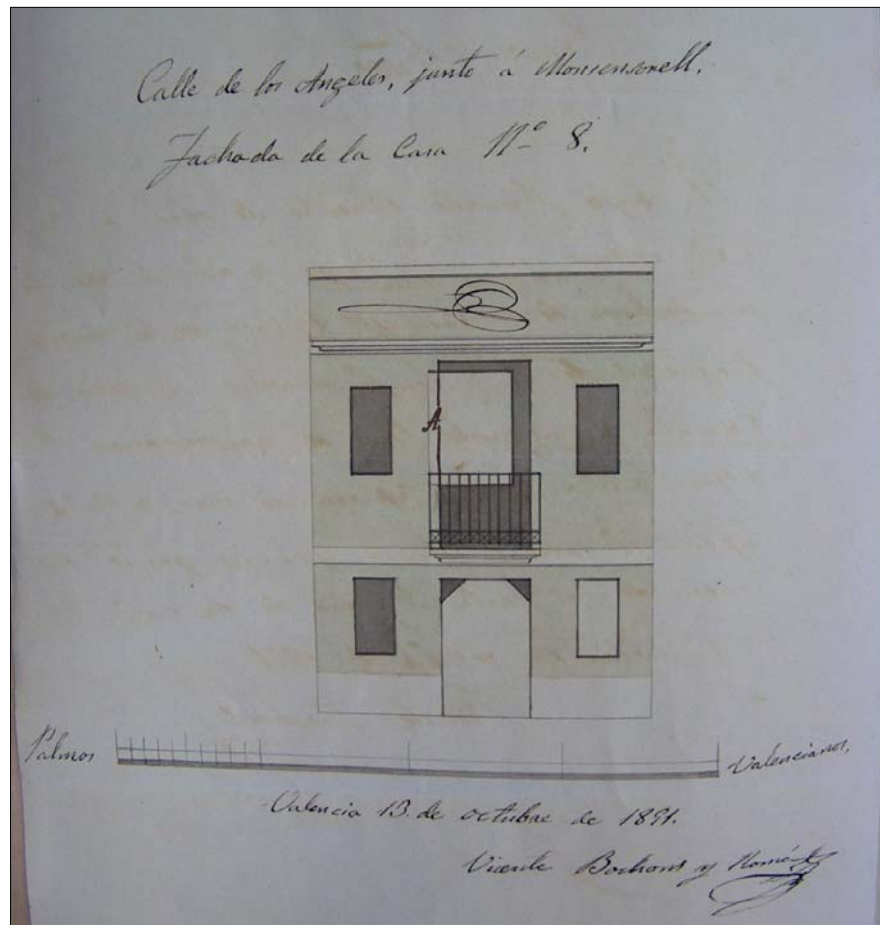 Calle de los Angeles, junto á Monsensorell.
Fachada de la Casa Nº 8.
A
Palmos Valencianos,
Valencia 13. de octubre de 1891.
Vicente Bochons y